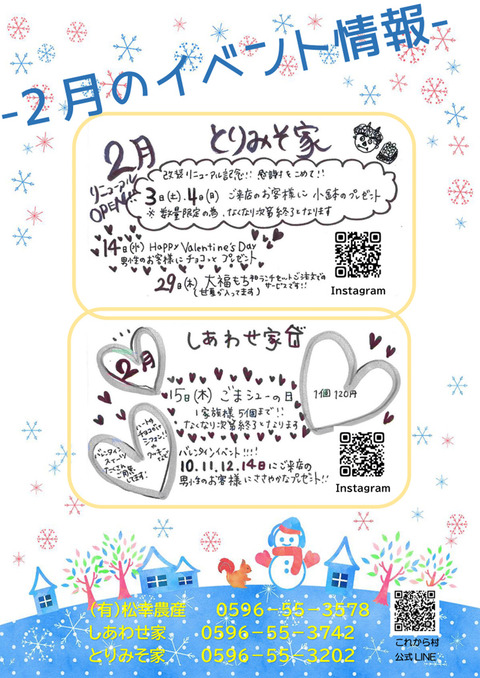 -２月のイベント情報-
2月
とりみそ家
リニューアル
OPEN!!
改装リニューアル記念!! 感謝をこめて!!
3日(土).4日(日) ご来店のお客様に 小鉢のプレゼント
※ 数量限定の為、なくなり次第終了となります
14日(水) Happy Valentine's Day
男性のお客様にチョコっとプレゼント
29日(木) 大福もち
ランチセットご注文での
サービスです!!
(甘夏が入ってます)
Instagram
しあわせ家
2月
15日(木) ごまシューの日
1個 120円
1家族様 5個まで!!
なくなり次第終了となります
ハートの
チョコがけ
シフォン!!
クッキー
など
バレンタイン
スイーツ
たくさん
ご用意
してます!
バレンタインイベント!!!!
10.11.12.14日にご来店の
男性のお客様にささやかなプレゼント!!
Instagram
(有)松幸農産 0596-55-3578
しあわせ家 0596-55-3742
とりみそ家 0596-55-3202
これから村
公式 LINE